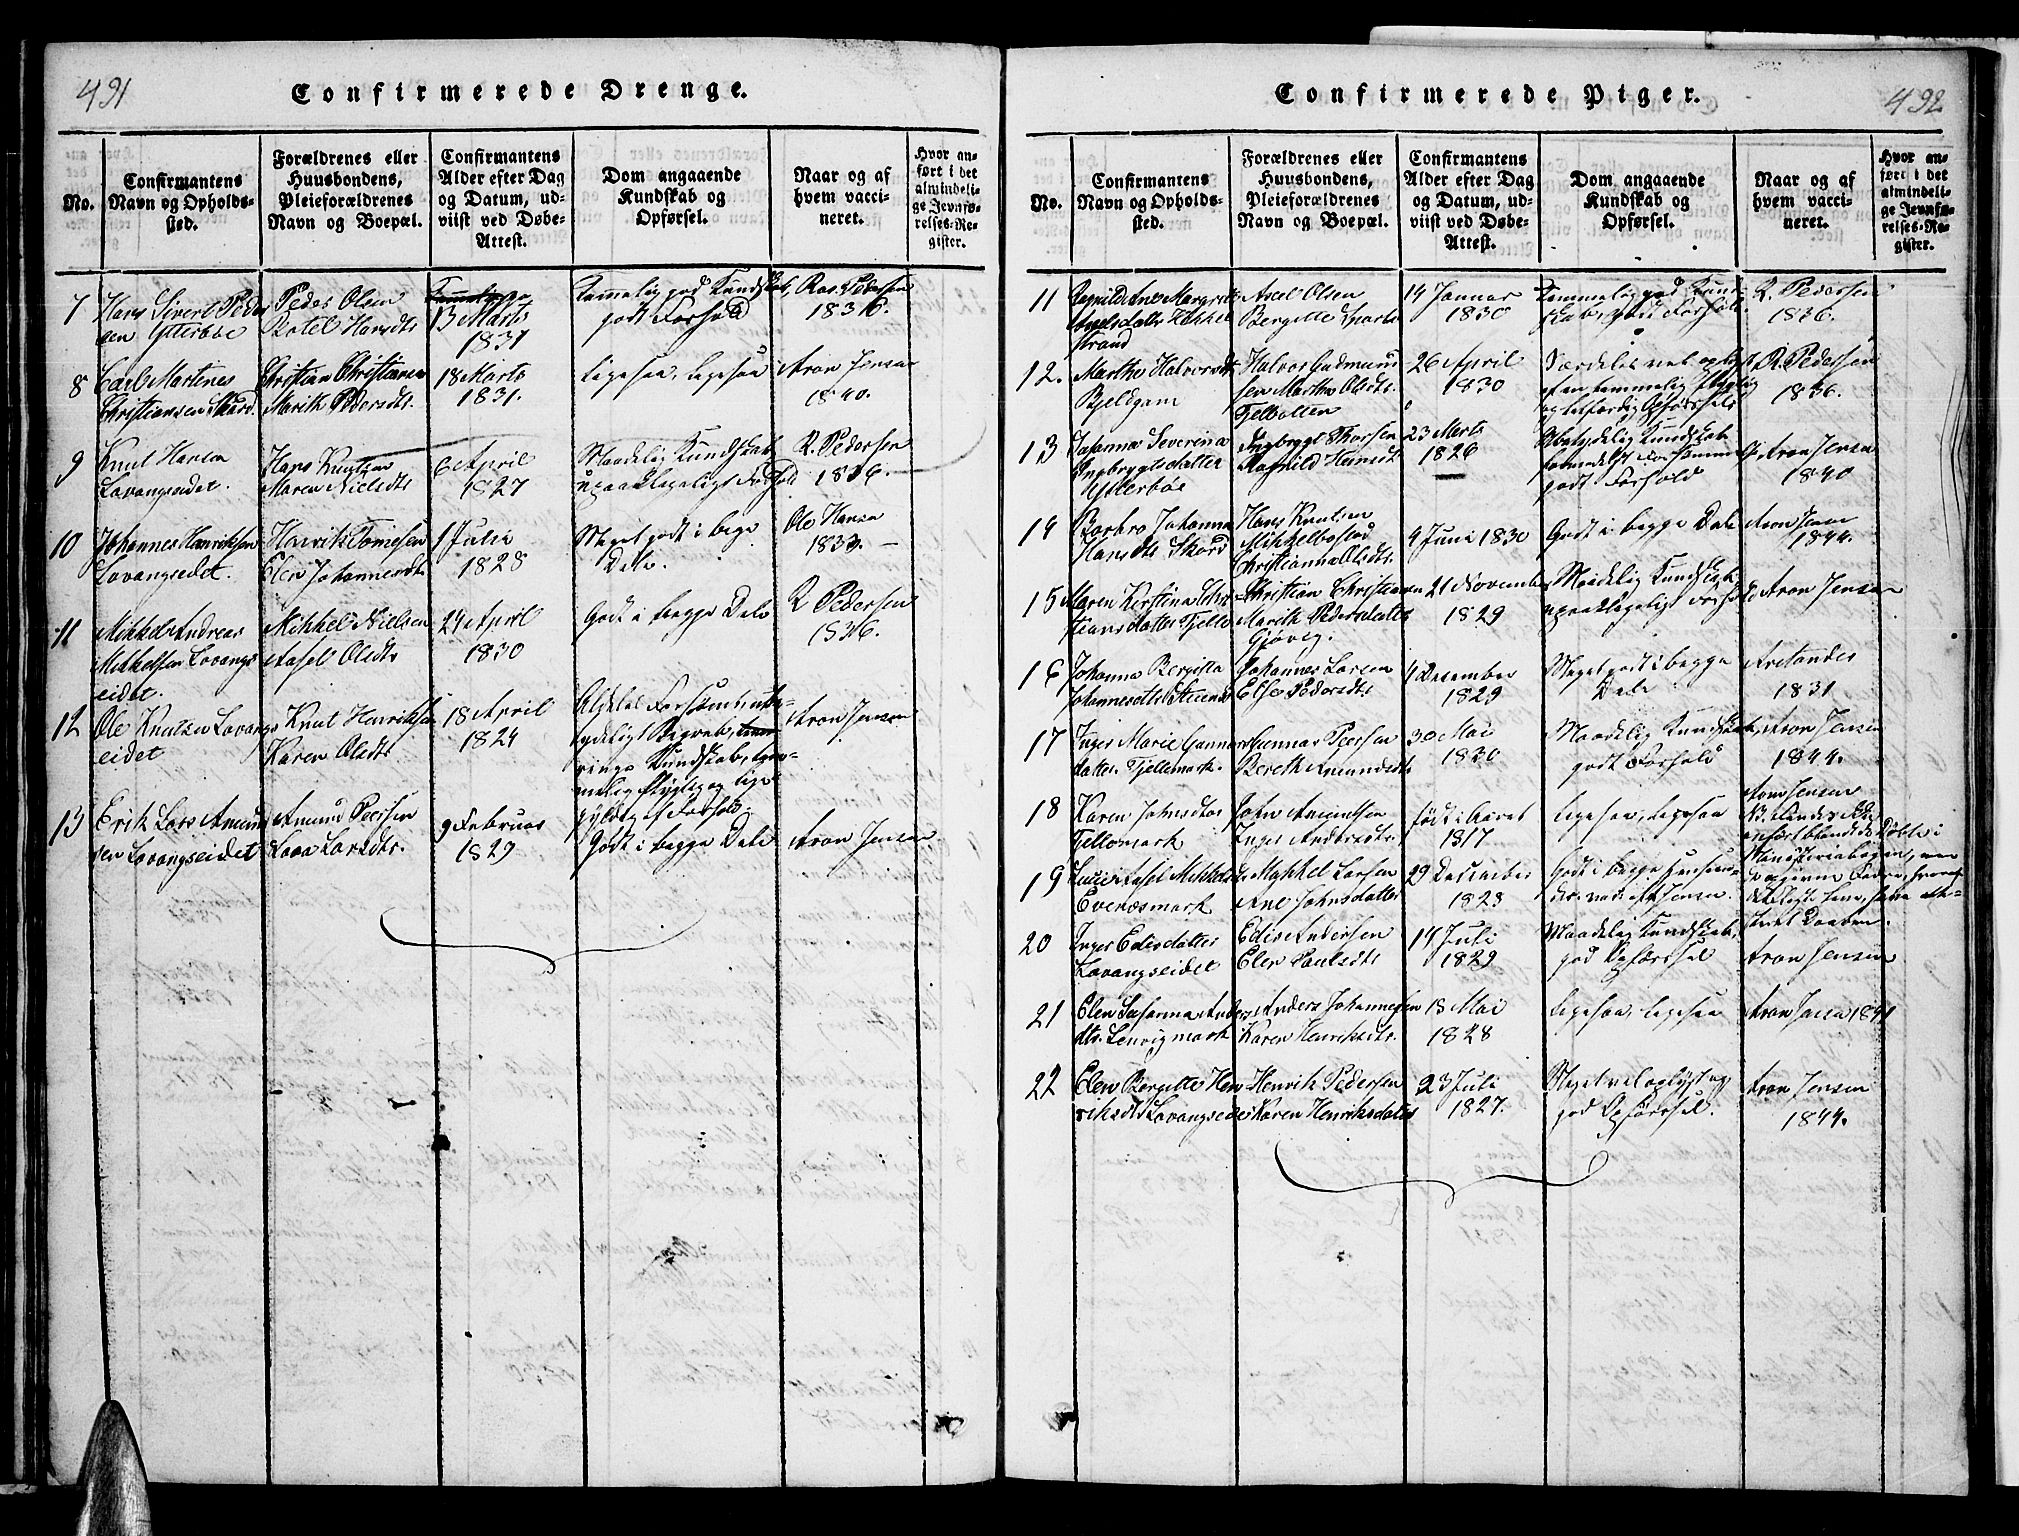 491
Confirmerede Drenge.
No.
Confirmantens
Navn og Opholds-
sted.
Forældrenes eller
Huusbondens,
Pleieforældrenes
Navn og Boepæl.
Confirmantens
Alder efter Dag
og Datum, ud-
viist ved Døbe-
Attest.
Dom angaaende
Kundskab og
Opførsel.
Naar og af
hvem vacci-
neret.
Hvor an-
ført i det
almindeli-
ge Jevnfø-
relses-Re-
gister.
7
Hans Sivert Peder
sen Ytterbøe
Peder Olsen
Hansdtr
13 Marts
1831
Temmelig god Kundskab,
godt Forhold
Ras. Pedersen
1836.
8
Carl Martines
Christiansen Skard
Christian Christiansen
Marith Pedersdtr.
18 Marts
1831.
ligesaa, ligesaa
Aron Jensen
1840.
9
Knut Hansen
Lavangseidet.
Hans Knutsen
Maren Nielsdtr
6 April
1827
Maadelig Kundskab
upaaklageligt Forhold
R. Pedersen
1836
10
Johannes Henriksen
Lavangseidet.
Henrik Tomesen
Elen Johannesdtr
1 Julii
1828
Meget godt i bege
Dele.
Ole Hansen
1833.
11
Mikkel Andreas
Mikkelsen Lavangs
eidet.
Mikkel Nielsen
Aasel Olsdtr
29 April
1830
Godt i begge Dele
R Pedersen
1836.
12
Ole Knutsen Lavangs
eidet
Knut Henriksen
Karen Olsdtr
18 April
1824
Aldeles Forsømt, uty-
deligt Begreb,
ringe Kundskab, tem-
melig flyttig og lige-
gyldig af Forhold.
Aron Jensen
13
Erik Lars Amund
sen Lavangseidet
Amund Peersen
Lava Larsdtr.
9 Februar
1829
Godt i begge Dele
Aron Jensen
492
Confirmerede Piger.
No.
Confirmantens
Navn og Opholds-
sted.
Forældrenes eller
Huusbondens,
Pleieforældrenes
Navn og Boepæl.
Confirmantens
Alder efter Dag
og Datum, ud-
viist ved Døbe-
Attest.
Dom angaaende
Kundskab og
Opførsel.
Naar og af
hvem vacci-
neret.
Hvor an-
ført i det
almindeli-
ge Jevnfø-
relses-Re-
gister.
11
Ragnild Ane Margrete
Axelsdatter
strand
Axel Olsen
Bergitte
14 Januar
1830
Temmelig god Kund-
skab, godt Forhold.
R. Pedersen
1836.
12.
Martha Halvorsdtr
Bjeldgam
Halvor Gudmund
sen Martha Olsdtr.
Fjelbotten
26 April
1830
Særdeles vel oplyst
R. Pedersen
1836.
13
Johanna Severina
Ingbrygtsdatter
Ytterbøe
Ingbrygt Thorsen
Ragnild Heinsdtr
23 Marts
1826
Ubetydelig Kundskab
godt Forhold
Aron Jensen
1840
14
Barbro Johanna
Hansdtr Skord
Hans Knutsen
Mikkelbostad
Christianna Olsdtr.
4 Juni 1830
Godt i begge Dele
Aron Jensen
1844.
15
Maren Kirstina Chris
tiansdatter Fjelle
Christian Christiansen
Marith Pedersdatter
Gjøvig.
21 November
1829
Maadelig Kundskab,
upaaklageligt Forhold
Aron Jensen
16
Johanna Bergitta
Johannesdtr
Johannes Larsen
Else Pedersdtr
4 Desember
1829
Meget godt i begge
Dele
1831
17
Inger Marie Gunnars
datter. Fjellemark.
Gunnar Peersen
Bereth Amundsdtr
30 Mai
1830
Maadelig Kundskab,
godt Forhold
Aron Jensen
1844.
18
Karen Johnsdtr
Fjellemark
John Amundsen
Inger Andersdtr
født i Aaret
1817
ligesaa, ligesaa
Aron Jensen
19
Aasel Mikkelsdr
Evenæsmark
Mykkel Larsen
Ane Johnsdatter
29 December
1828
Godt i begge
20
Inger Edisdatter
Lavangseidet
Edis Andersen
Elen Paulsdtr
14 Juli
1829
Maadelig Kundskab,
god Opførssel
Aron Jensen
21
Elen Susanna Anders
dtr. Lenvigmark
Anders Johannesen
Karen Henriksdtr.
13 Mai
1828
ligesaa, ligesaa
Aron Jensen 1841
22
Elen Bergitte Hen
riksdtr Lavangseidet
Henrik Pedersen
Karen Henriksdatter
23 Juli
1827.
Meget vel oplyst og
god Opførssel.
Aron Jensen
1844.